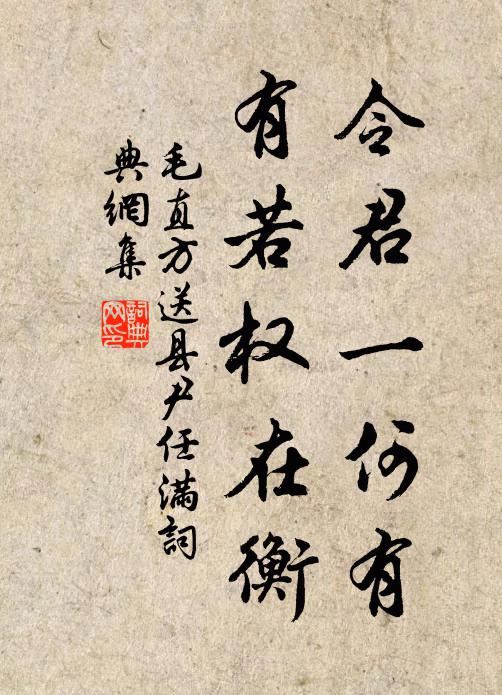 令君一何有
有若权在衡
毛直方送县尹任满詞
典網集
詞典網印